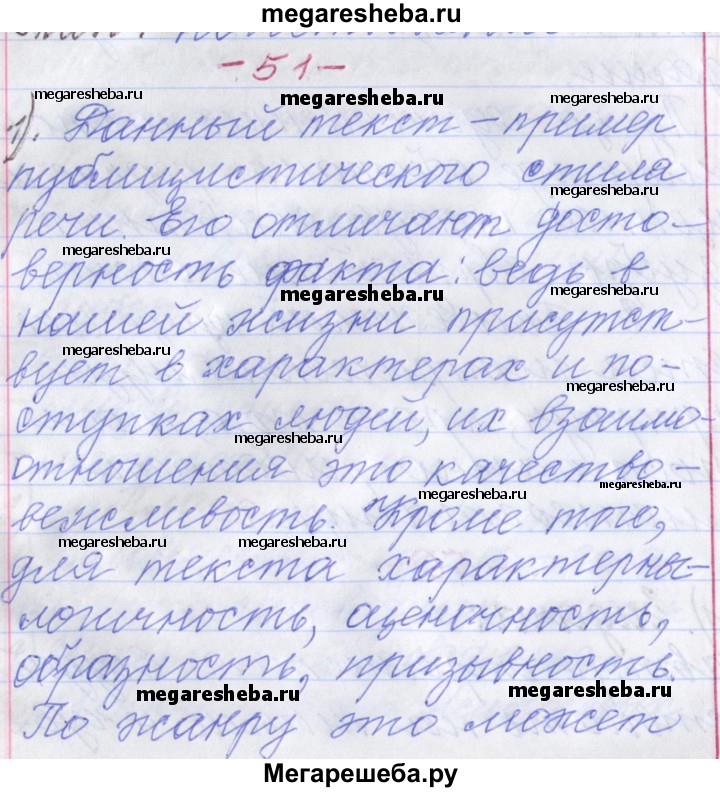 megaresheba.ru
-51-
megaresheba.ru megaresheba.ru megaresheba.ru
1). Данный текст - пример
публицистического стиля
megaresheba.ru
речи. Его отличают досто-
megaresheba.ru
верность факта: ведь в
megaresheba.ru
нашей жизни присутст-
megaresheba.ru
вует в характерах и по-
megaresheba.ru
ступках людей, их взаимо-
megaresheba.ru
отношения это качество-
megaresheba.ru
megaresheba.ru
вежливость. Кроме того,
megaresheba.ru megaresheba.ru
для текста характерны-
логичность, оценочность,
образность, призывность.
megaresheba.ru megaresheba.ru
По жанру это может
Мегарешеба.ру